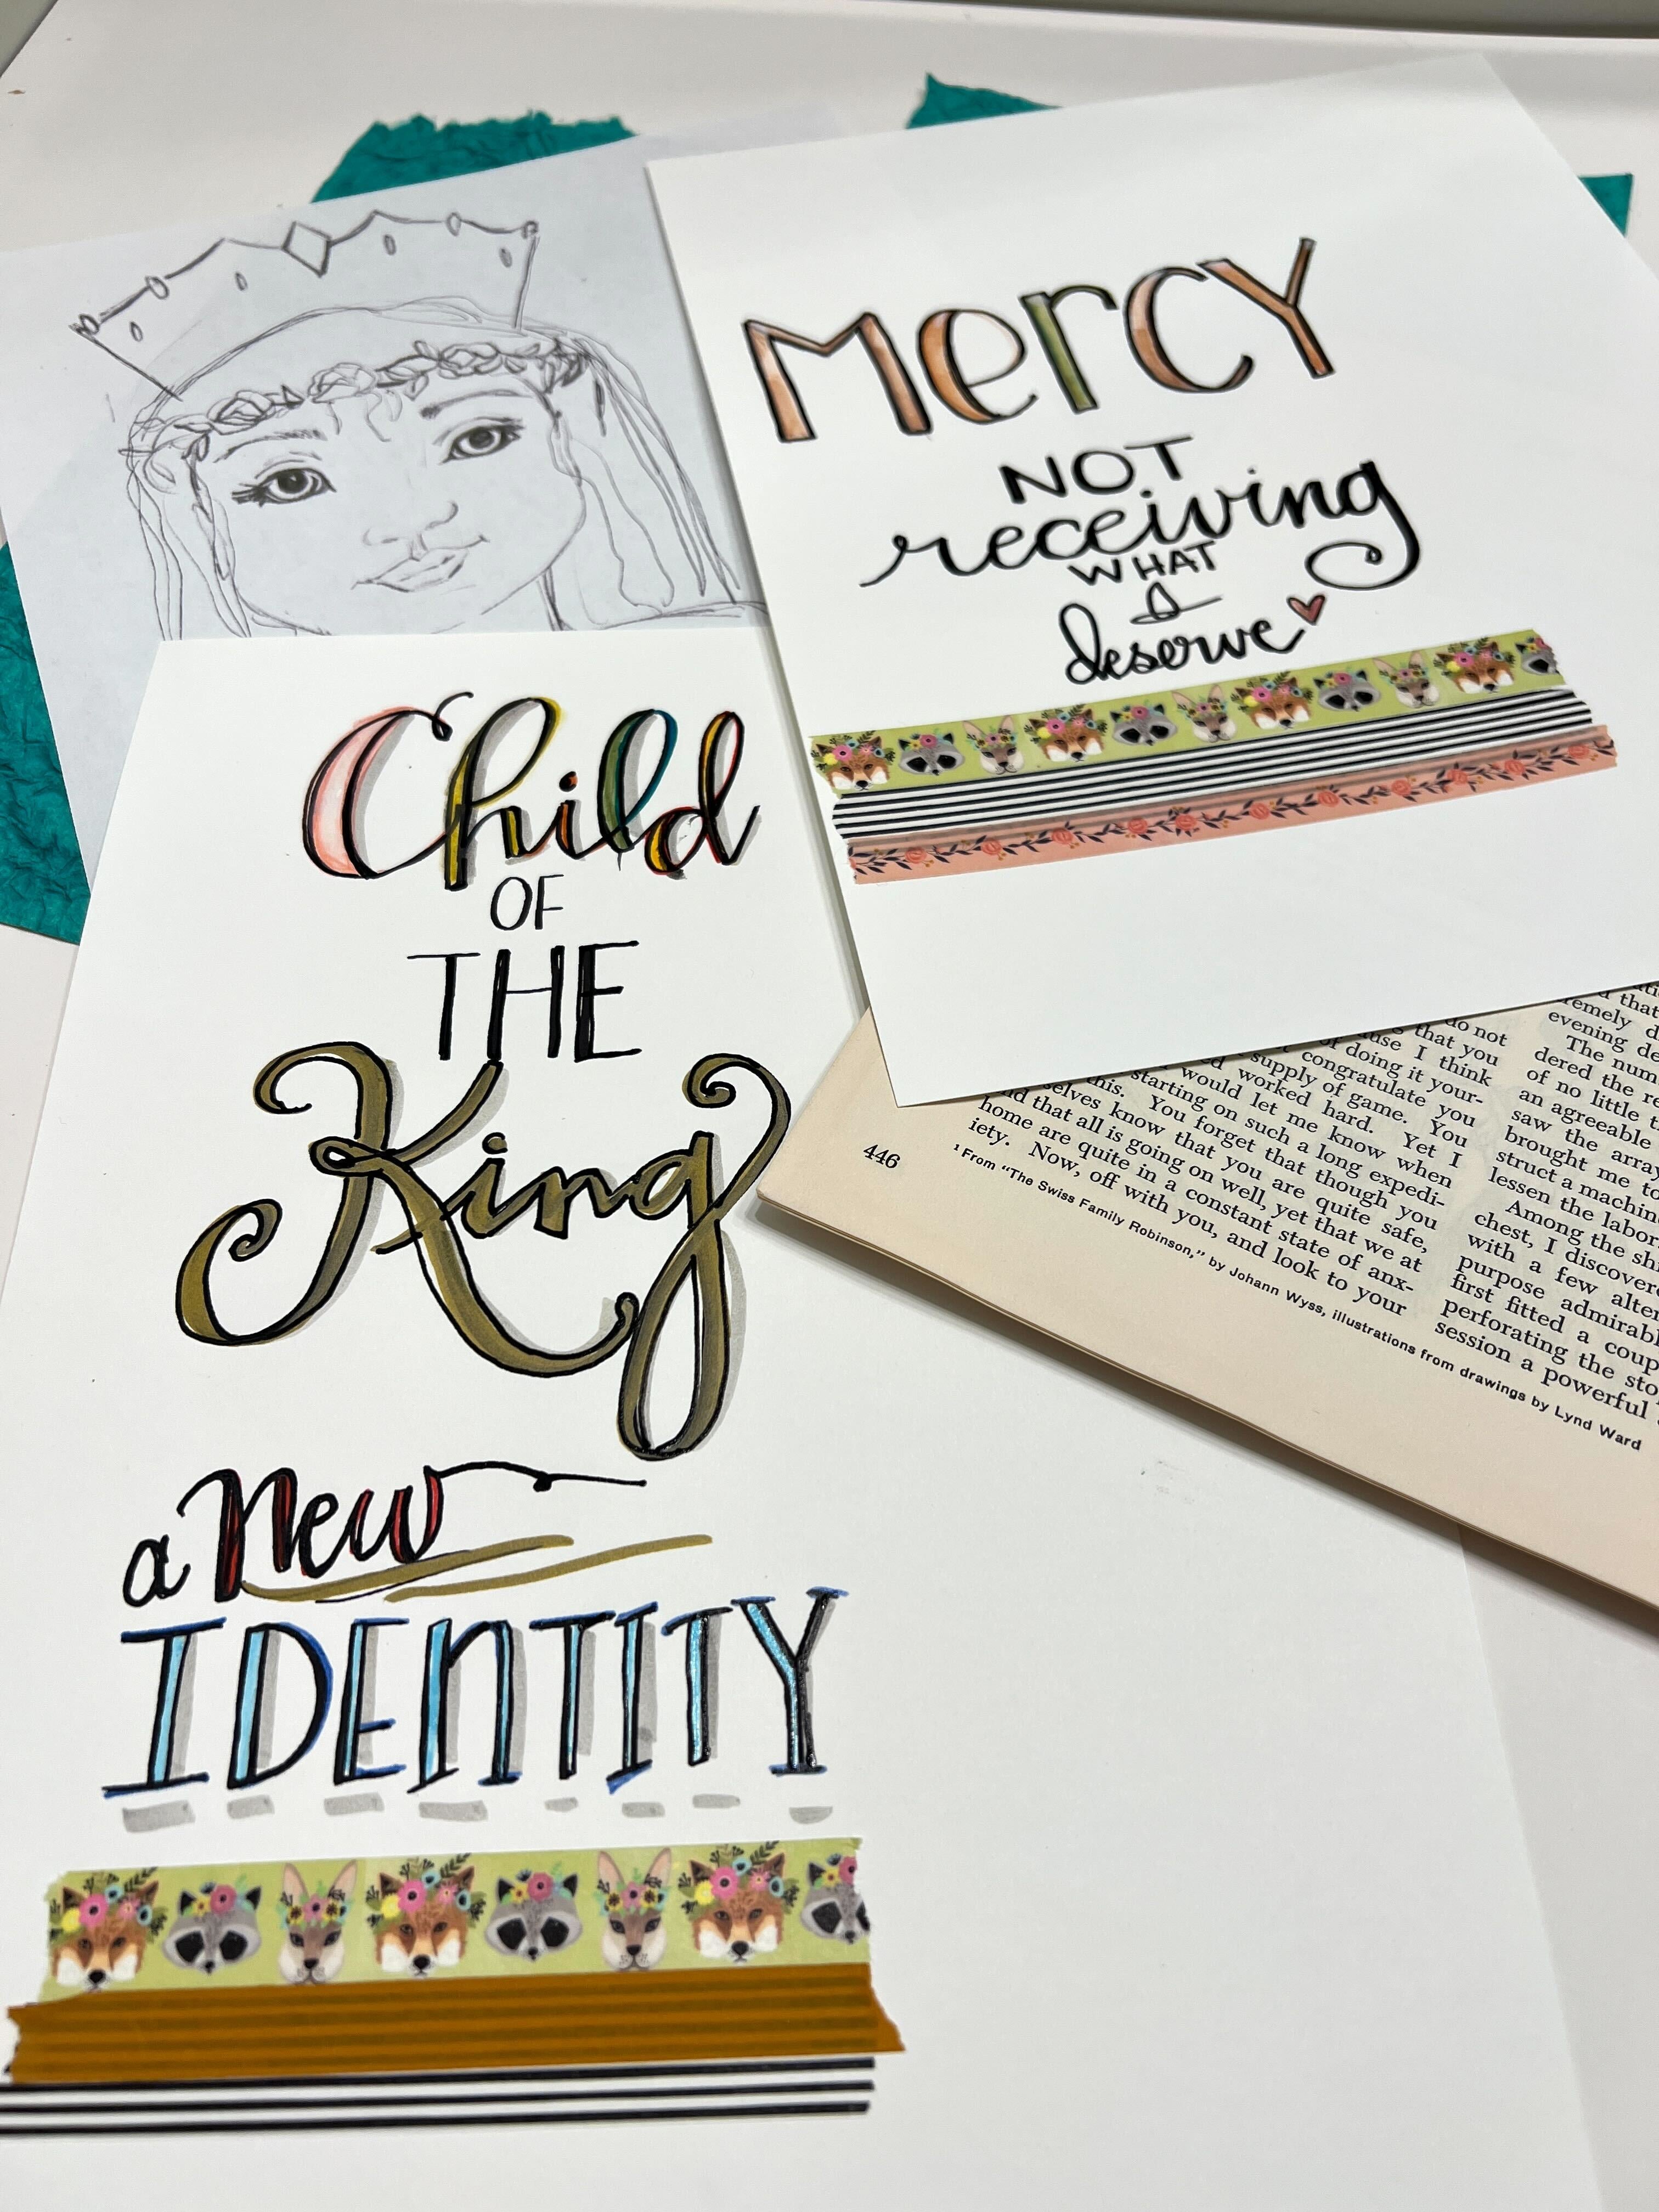 Mercy
NOT
receiving
WHAT
I
deserve
Child
OF
THE
King
a New
IDENTITY
do not
that you
I think
of doing it your-
congratulate you
supply of game. You
worked hard. Yet I
would let me know when
starting on such a long expedi-
this. You forget that though you
selves know that you are quite safe,
that all is going on well, yet that we at
home are quite in a constant state of anx-
iety. Now, off with you, and look to your
446
¹ From "The Swiss Family Robinson," by Johann Wyss, illustrations from drawings by Lynd Ward
that
evening
The
dered the
of no little
an agreeable
saw the array
brought me to
struct a
lessen the
Among the
chest, I
with a few
purpose
first fitted a
perforating the
session a powerful